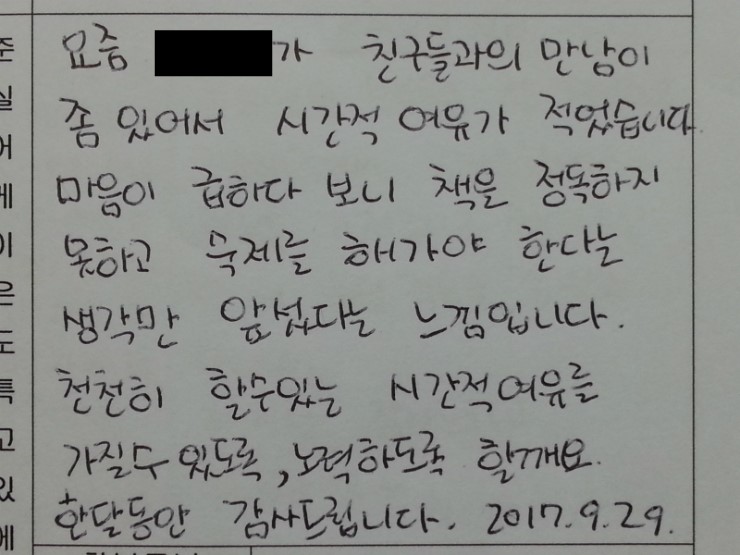 요즘 가 친구들과의 만남이
좀 있어서 시간적 여유가 적었습니다
마음이 급하다 보니 책을 정독하지
못하고 숙제를 해가야 한다는
생각만 앞섰다는 느낌입니다.
천천히 할수있는 시간적여유를
가질수 있도록, 노력하도록 할께요.
한달동안 감사드립니다. 2017.9.29.